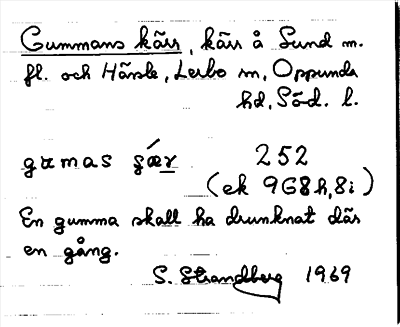 Gummans kärr, kärr å Sund m.
fl. och Härsle, Lerbo sn, Oppunda
hd, Söd. l.
gumas çǽr 252
(ek 9G8h,8i)
En gumma skall ha drunknat där
en gång.
S. Strandberg 1969